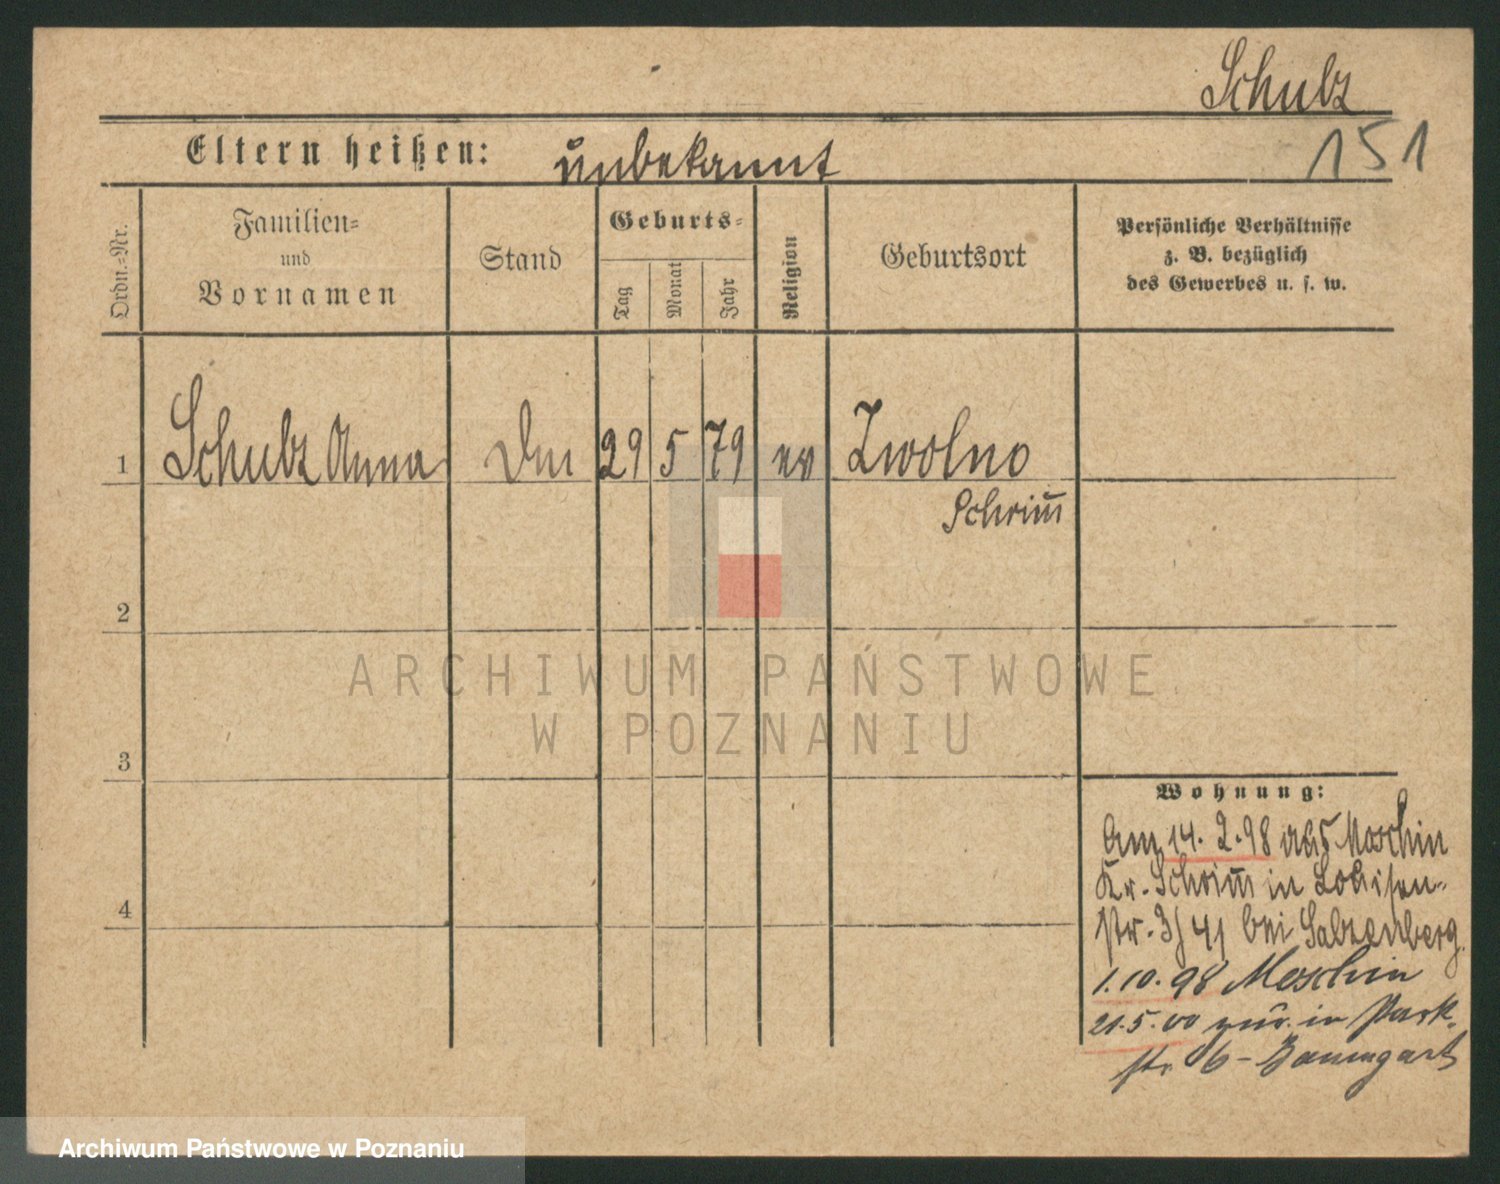 Schulz
151
Eltern heißen: unbekannt
Ordn.-Nr.
Familien-
und
Vornamen
Stand
Geburts-
Tag
Monat
Jahr
Religion
Geburtsort
Persönliche Verhältnisse
z. B. bezüglich
des Gewerbes u. s. w.
1 Schulz Anna 29 5 79 ev Zwolno
Schrim̅
2
ARCHIWUM PAŃSTWOWE
W POZNANIU
3
Wohnung:
Am 14. 2. 98 aus Moschin
Kr. Schrim̅ in Louisen-
str. 3/41 bei
1.10.98 Moschin
21.5.00 zur. in Park-
str. 6 - Baumgart
4
Archiwum Państwowe w Poznaniu